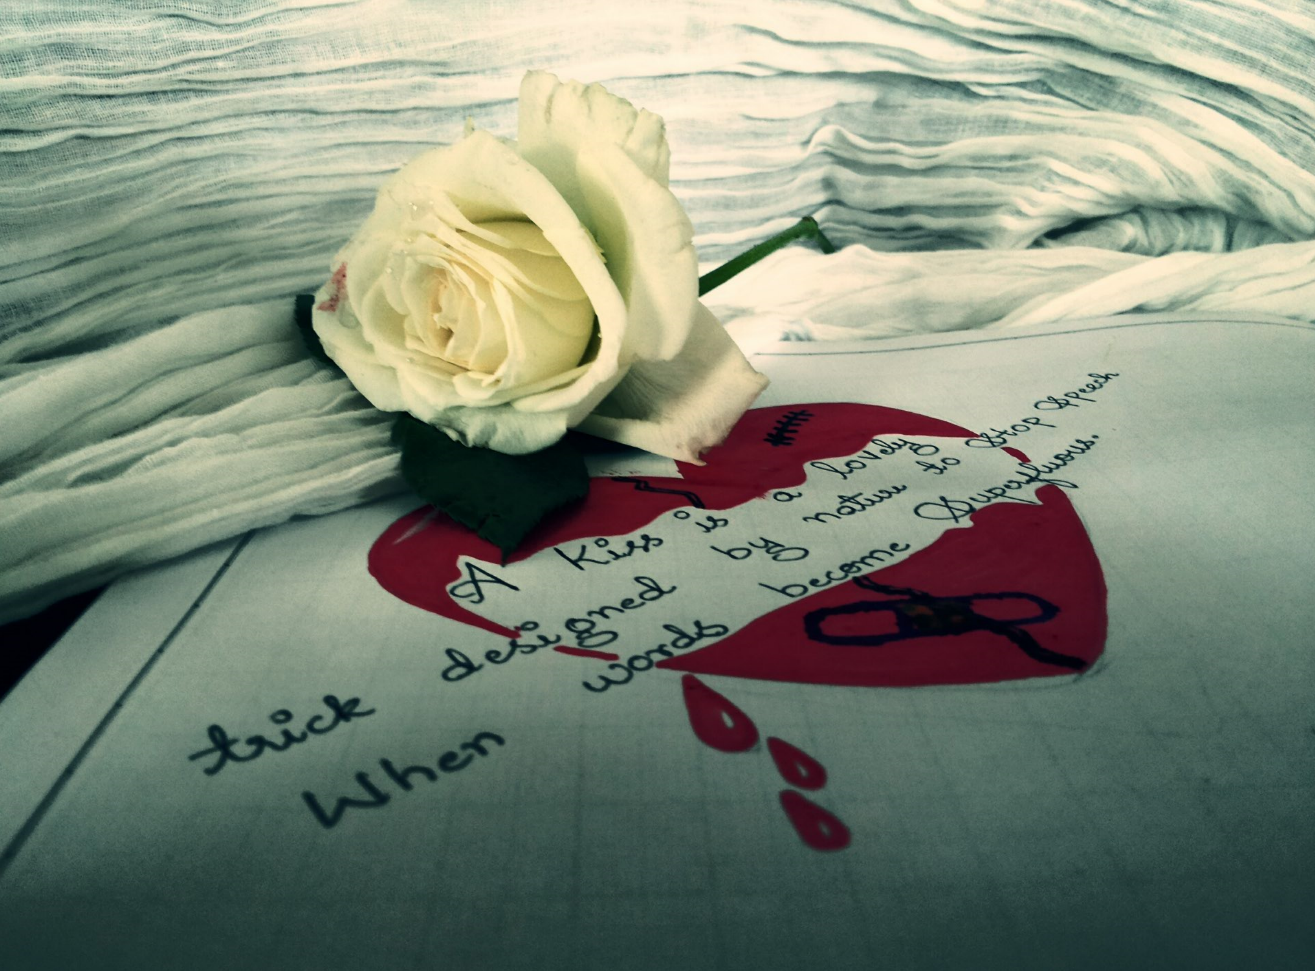 A Kiss is a lovely
trick designed by nature to Stop Speech
When words become Superfluous.